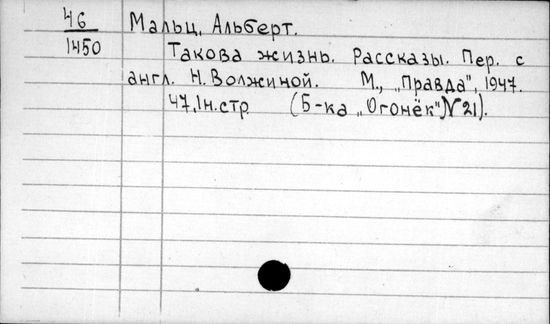 46 Мальц, Альберт.
1450 Такова жизнь. Рассказы. Пер. с
англ. Н. Волжиной. М., „Правда", 1947.
47,1н.стр (Б-ка „Огонёк" № 21).